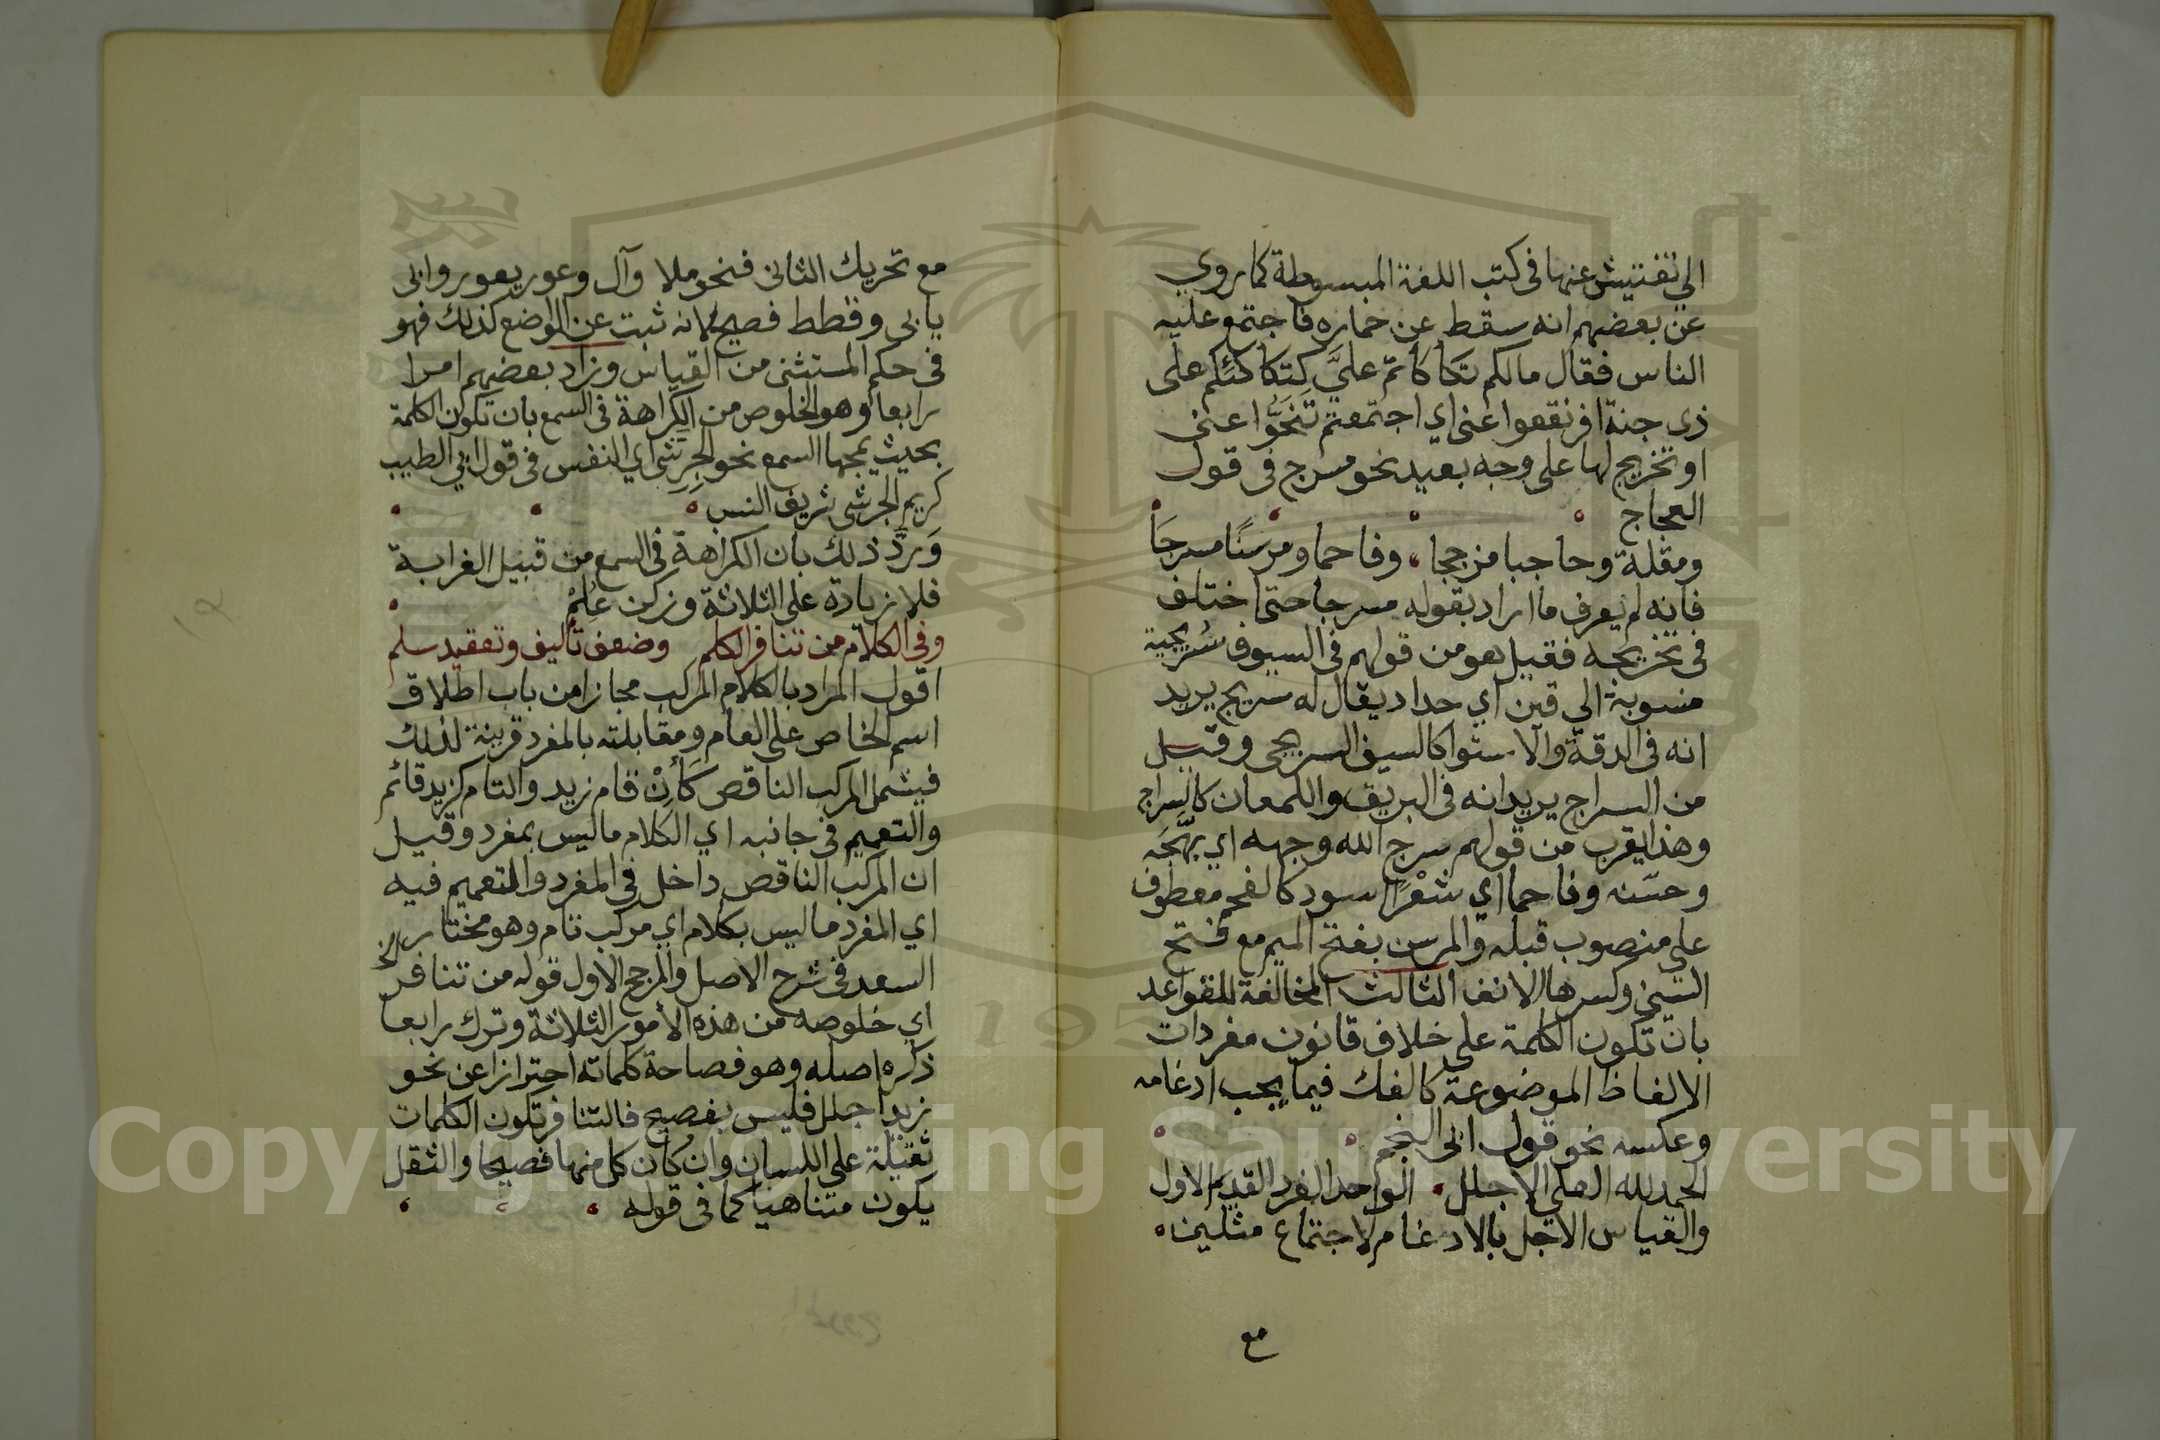 الى تفتيش عنها فى كتب اللغة المبسوطة كما روي
عن بعضهم انه سقط عن حماره فاجتمع عليه
الناس فقال مالكم تكأكأتم عليَّ كتكأكئكم على
ذى جنة افرنقعوا عنى اي اجتمعتم تَنَحَّوُا عنى
او تخريج لها على وجه بعيد نحو مسرج فى قول
العجاج
ومقلة وحاجبا مزججا وفاحما ومرسنًا مسرجَا
فانه لم يعرف ما اراد بقوله مسرجا حتى اختلف
فى تخريجه فقيل هو من قولهم فى السيوف سُريجية
منسوبة الي قين اي حداد يقال له سريج يريد
انه فى الدقة والاستوا كالسيف السريجى وقيل
من السراج يريد انه فى البريق واللمعان كالسراج
وهذا يقرب من قولهم سرج الله وجهه اي بهَّجَه
وحسّنه وفاحما اي شعْرًا اسود كالفحم معطوف
على منصوب قبله والمرسن بفتح الميم مع فتح
السين وكسرها الانف الثالث المخالفة للقواعد
بان تكون الكلمة على خلاف قانون مفردات
الالفاظ الموضوعة كالفك فيما يجب ادغامه
وعكسه نحو قول ابى النجم
الحمد لله العلي الاجلل الواحد الفرد القديم الاول
والقياس الاجل بالادغام لاجتماع مثلين
مع
مع تحريك الثانى فنحو ملا وآل وعور يعور وابى
يابى وقطط فصيح لانه ثبت عن الوضع كذلك فهو
فى حكم المستثنى من القياس وزاد بعضهم امرا
رابعا وهو الخلوص من الكراهة فى السمع بان تكون الكلمة
بحيث يمجها السمع نحو الجِرِشى اي النفس فى قول ابي الطيب
كريم الجرشى شريف النسب
وَرُدَّ ذلك بان الكراهة فى السمع من قبيل الغرابة
فلا زيادة على الثلاثة وزكن عُلِمْ
وفى الكلام من تنافر الكلم وضعف تأليف وتعقيد سلم
اقول المراد بالكلام المركب مجازا من باب اطلاق
اسم الخاص على العام ومقابلته بالمفرد قرينة لذلك
فيشمل المركب الناقص كَأنْ قام زيد والتام كزيد قائم
والتعميم فى جانبه اي الكلام ما ليس بمفرد وقيل
ان المركب الناقص داخل فى المفرد والتعميم فيه
اي المفرد ما ليس بكلام اي مركب تام وهو مختار
السعد فى شرح الاصل والمرجح الاول قوله من تنافر الخ
اي خلوصه من هذه الأمور الثلاثة وترك رابعا
ذكره اصله وهو فصاحة كلماته احترازا عن نحو
زيد اجلل فليس بفصيح فالتنافر تكون الكلمات
ثقيلة على اللسان وان كان كل منها فصيحا والثقل
يكون متناهيا كما فى قوله
Copyright © King Saud University
195